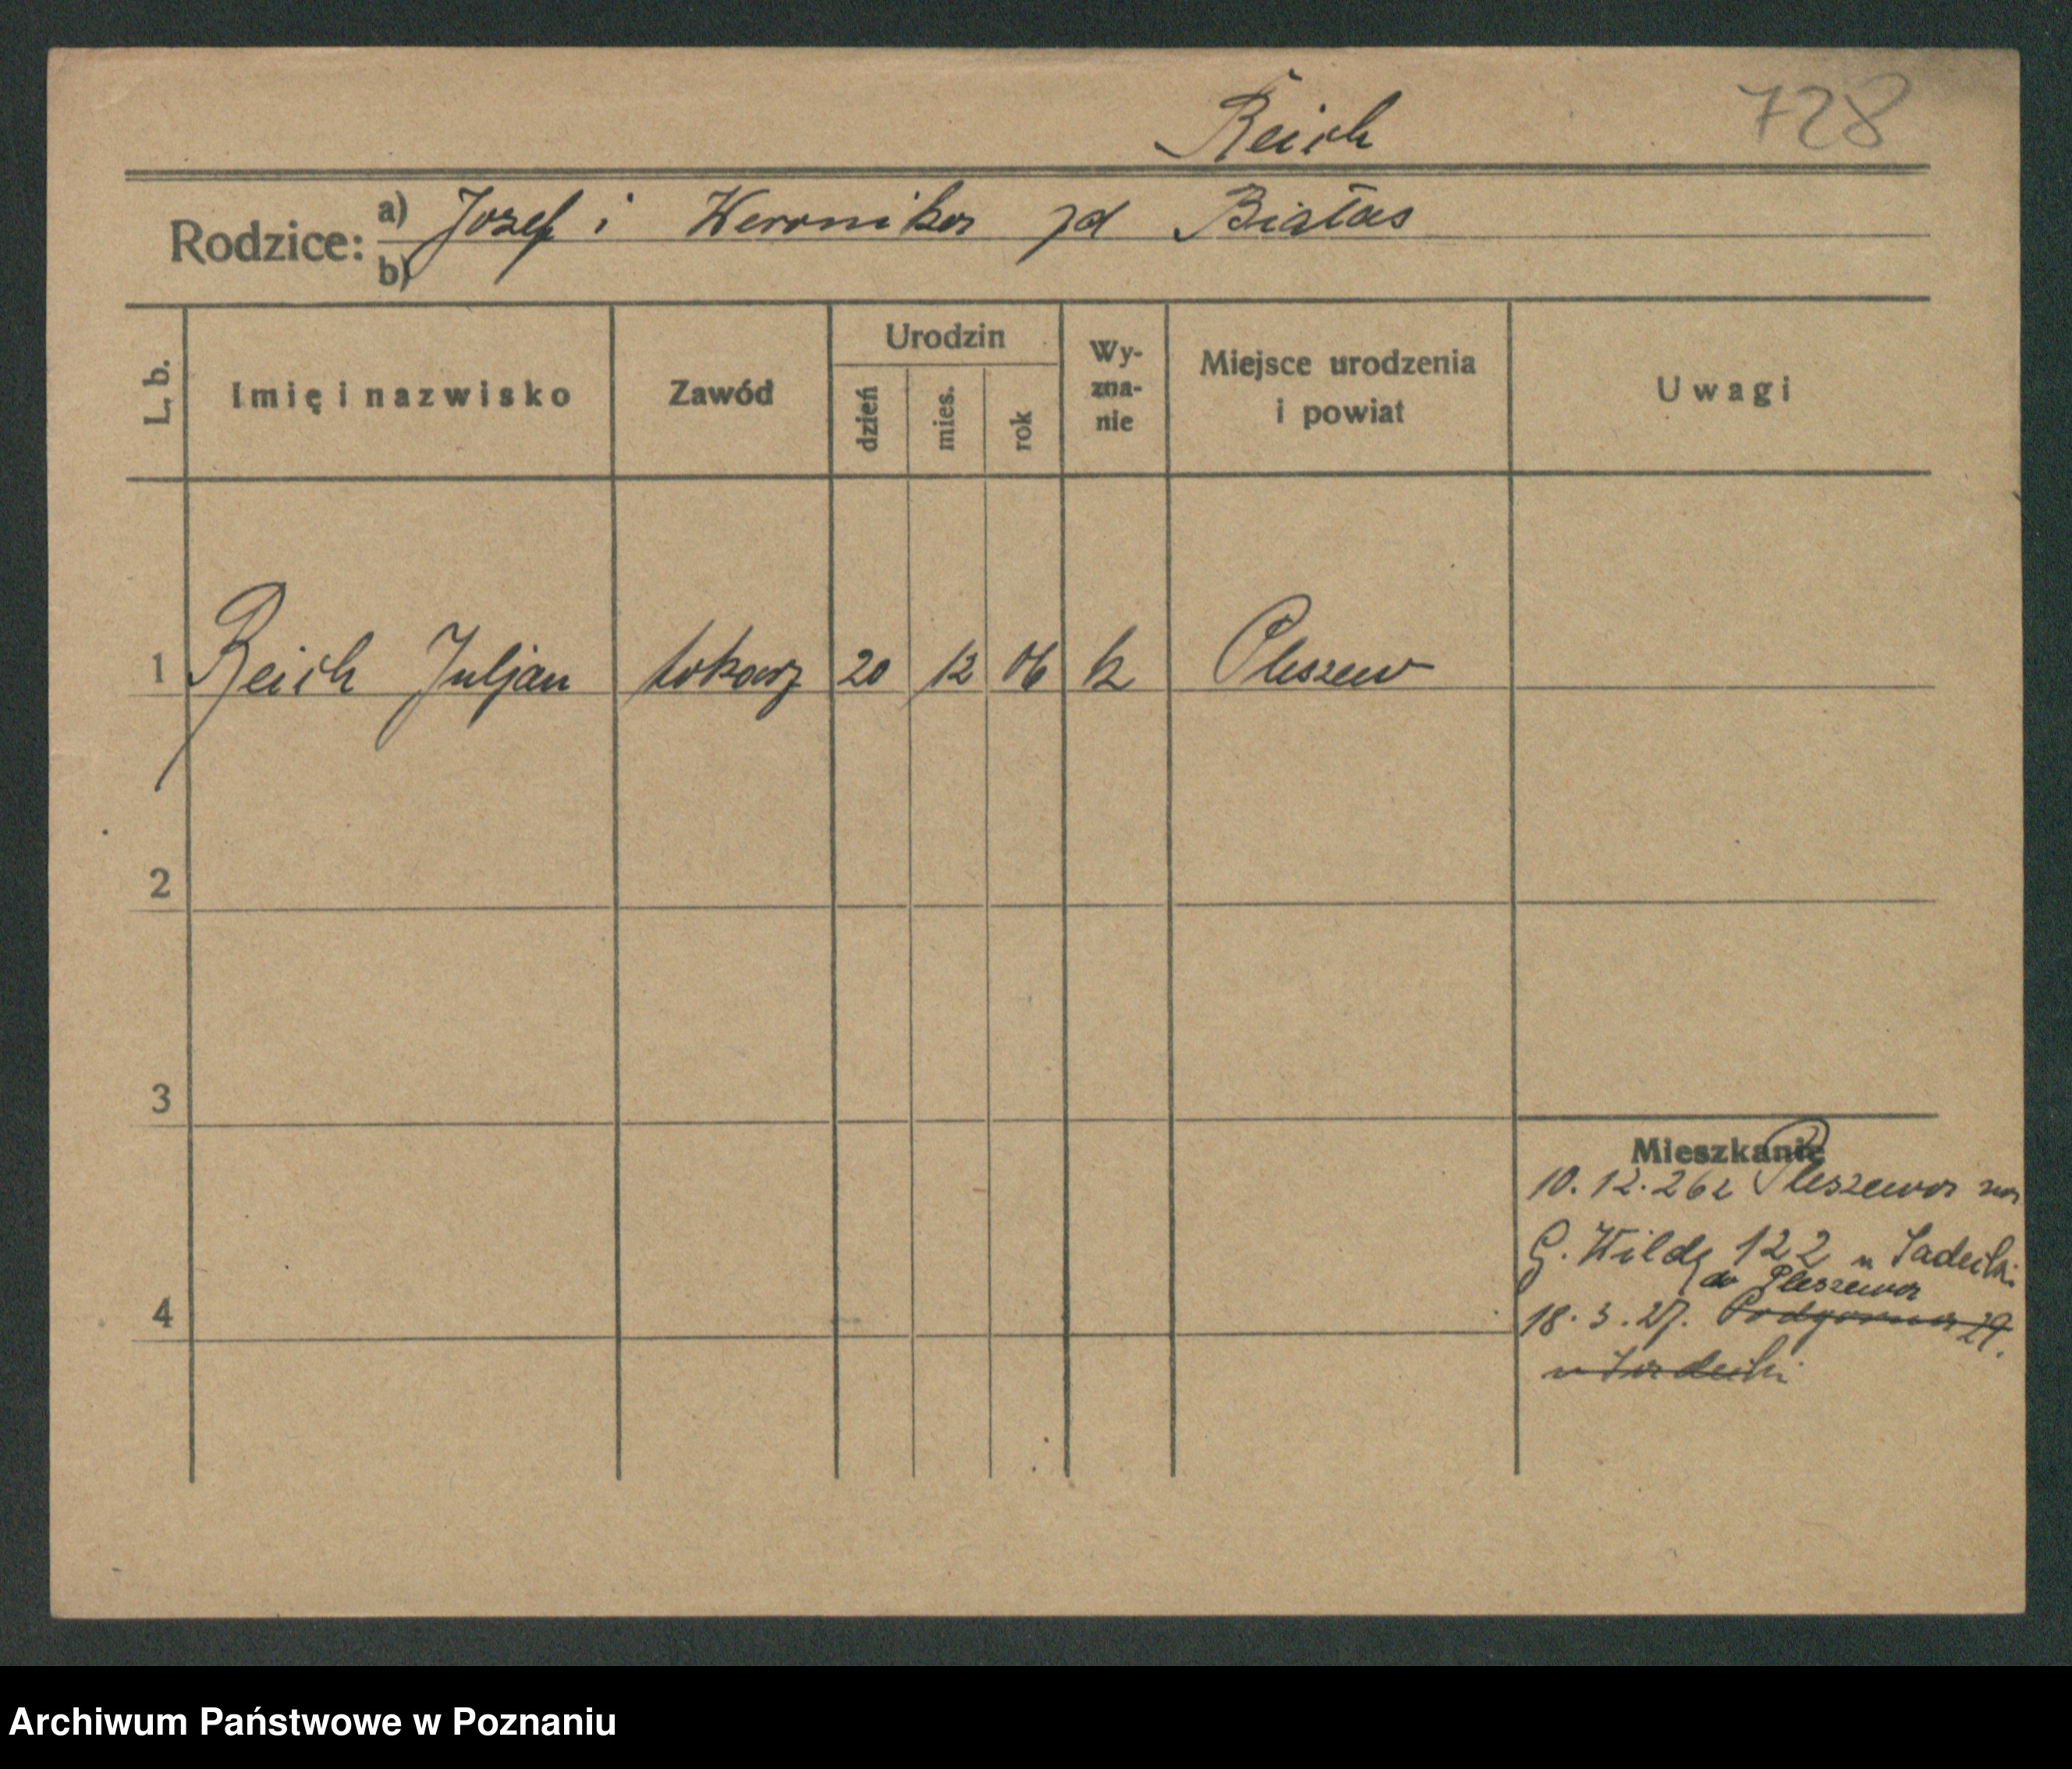 Reich 728
Rodzice: a) Jozef i Weronika zd Białas
b)
L. b. Imię i nazwisko Zawód Urodzin dzień mies. rok Wy-zna-nie Miejsce urodzenia i powiat Uwagi
1 Reich Juljan tokarz 20 12 06 k Pleszew
2
3
Mieszkanie
10.12.26 z Pleszewa na
G. Wildę 122 u Sadecki
do Pleszewa
4
18.3.27. Podgorna 29.
u Sadecki
Archiwum Państwowe w Poznaniu